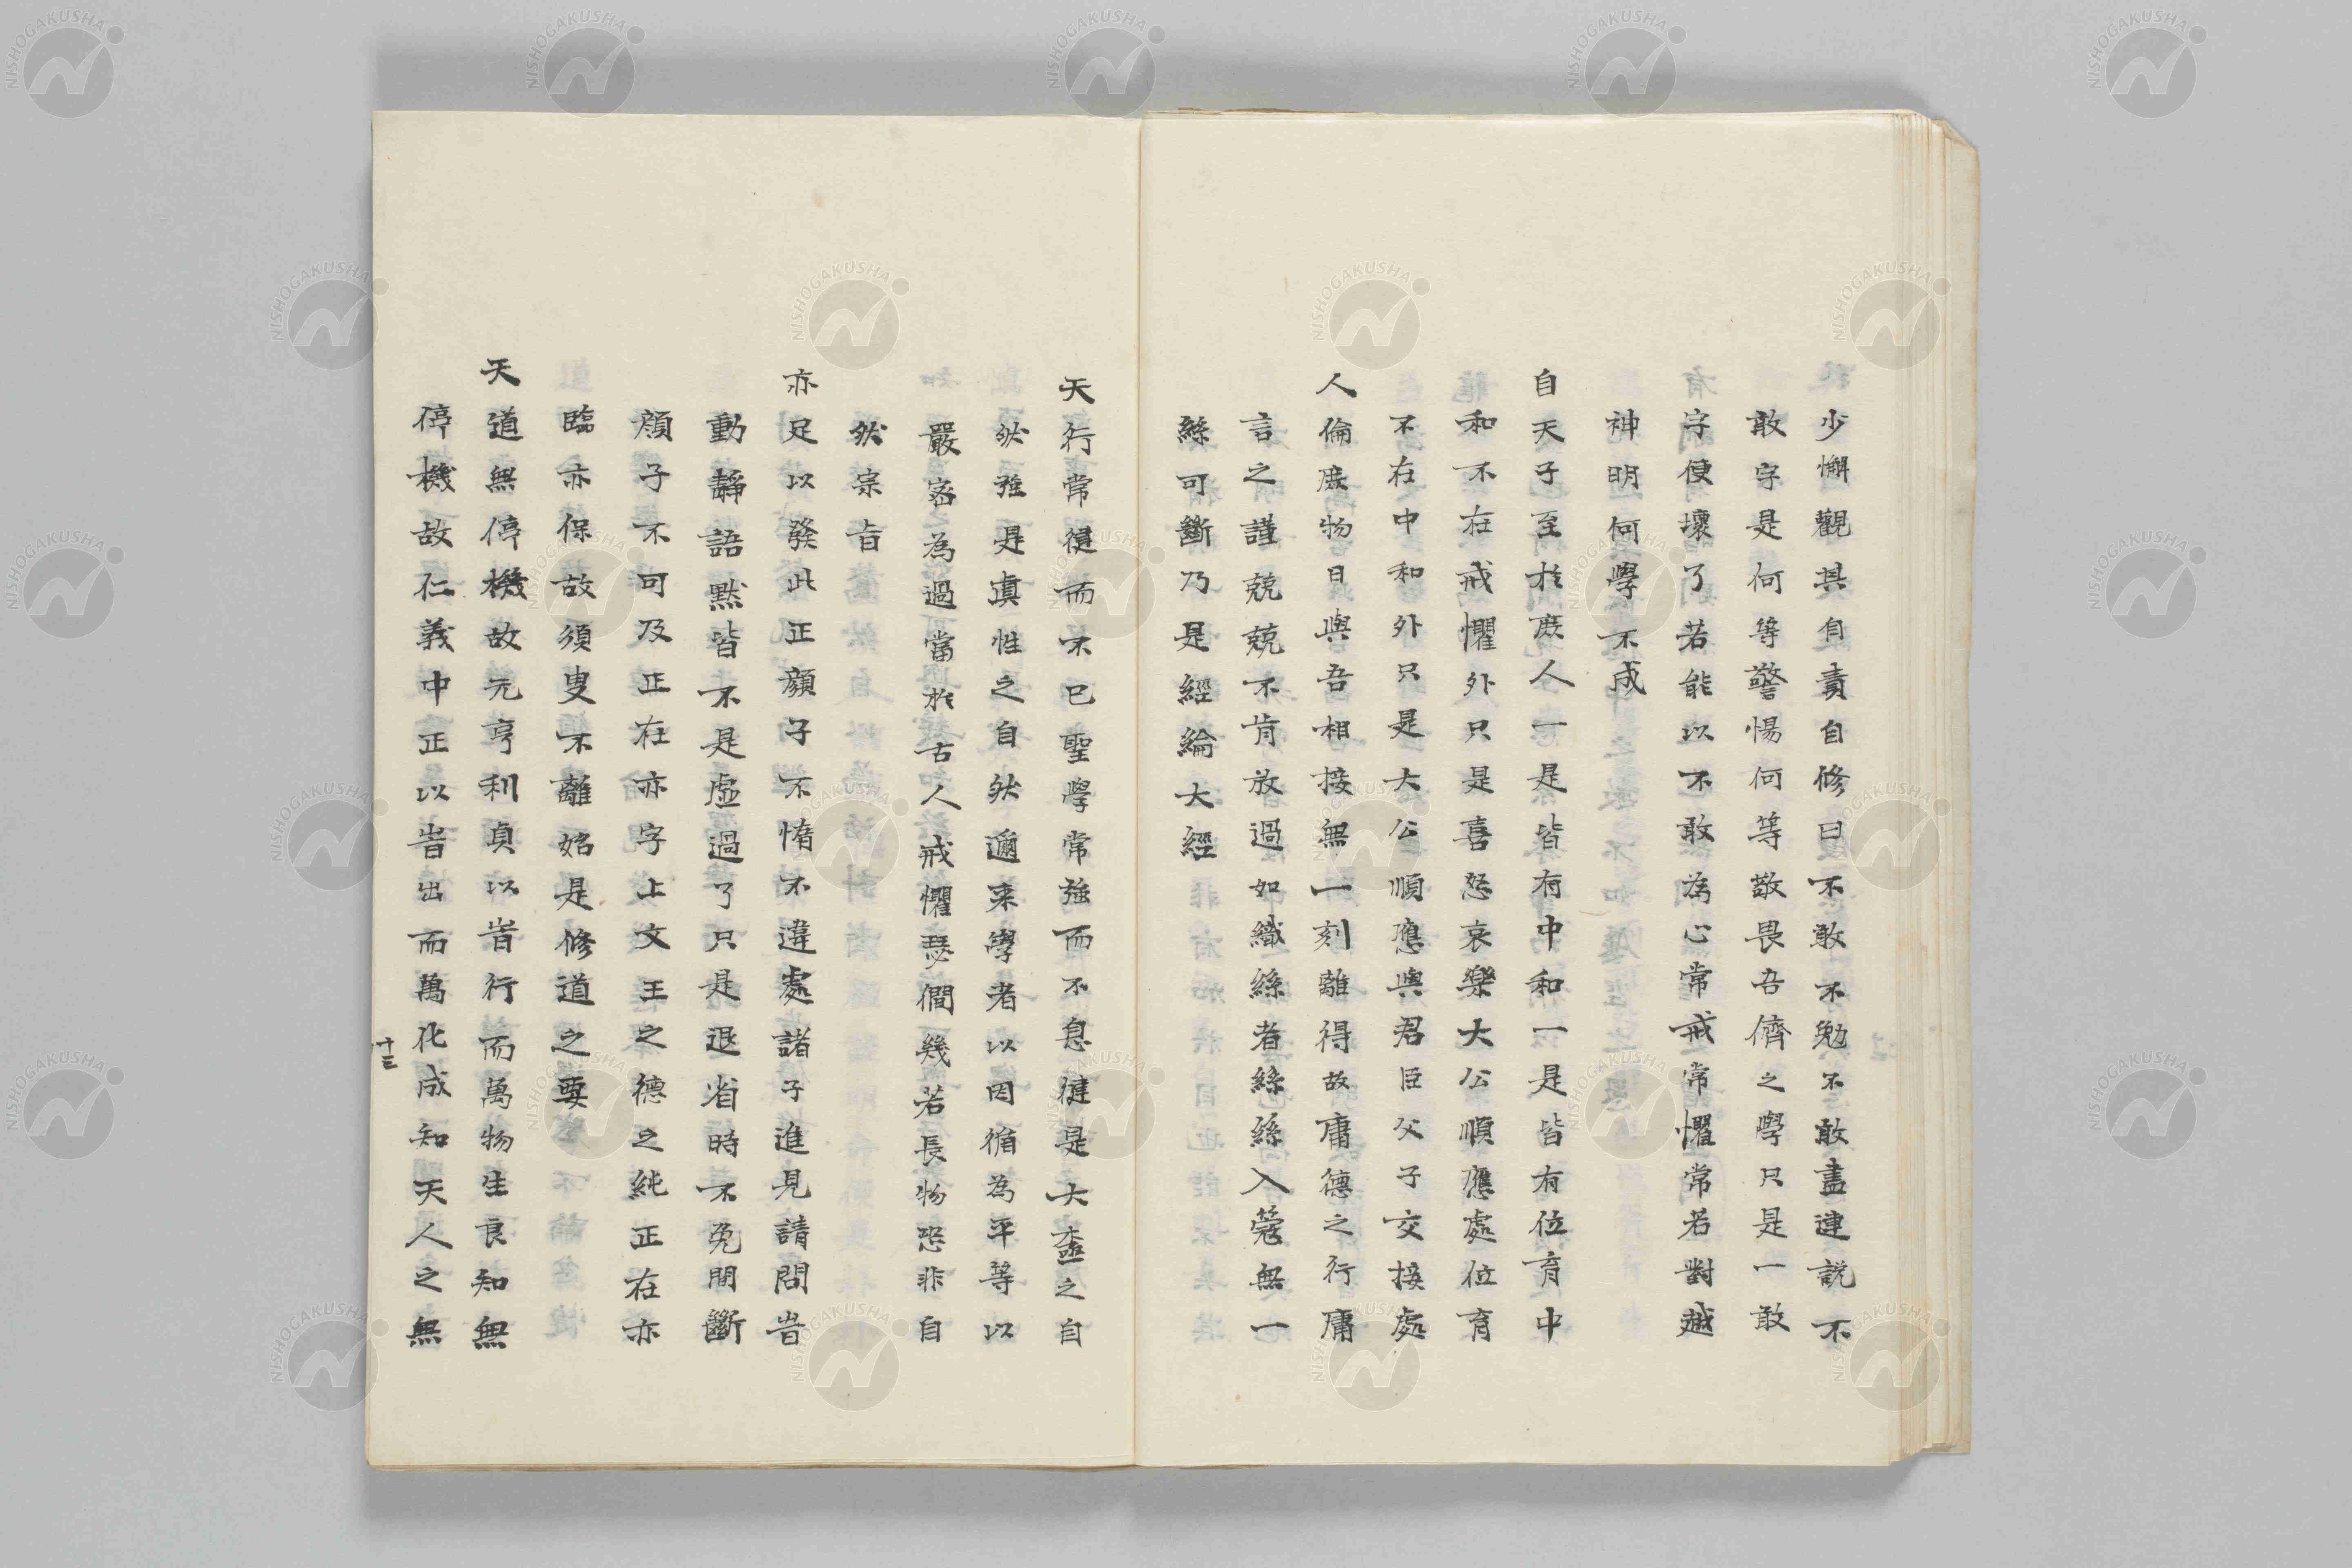 少懈觀其自責自修曰不敢不勉不敢盡連說不
敢字是何等警惕何等敬畏吾儕之學只是一敢
字便壞了若能以不敢為心常戒常懼常若對越
神明何學不成
自天子至於庶人一是皆有中和一是皆有位育中
和不在戒懼外只是喜怒哀樂大公順應處位育
不在中和外只是大公順應與君臣父子交接處
人倫庶物日與吾相接無一刻離得故庸德之行庸
言之謹兢兢不肯放過如織絲者絲絲入蔻無一
絲可斷乃是經綸大經
天行常健而不已聖學常強而不息健是大虛之自
然強是真性之自然邇來學者以因循為平等以
嚴密之為過當於古人戒懼瑟僩幾若長物恐非自
然宗旨
亦足以發此正顏子不惰不違處諸子進見請問皆
動靜語默皆不是虛過了只是退省時不免間斷
顏子不可及正在亦字上文王之德之純正在亦
臨亦保故須臾不離始是修道之要
天道無停機故元亨利貞以時行而萬物生良知無
停機故仁義中正以時出而萬化成知天人之無
十三
NISHOGAKUSHA